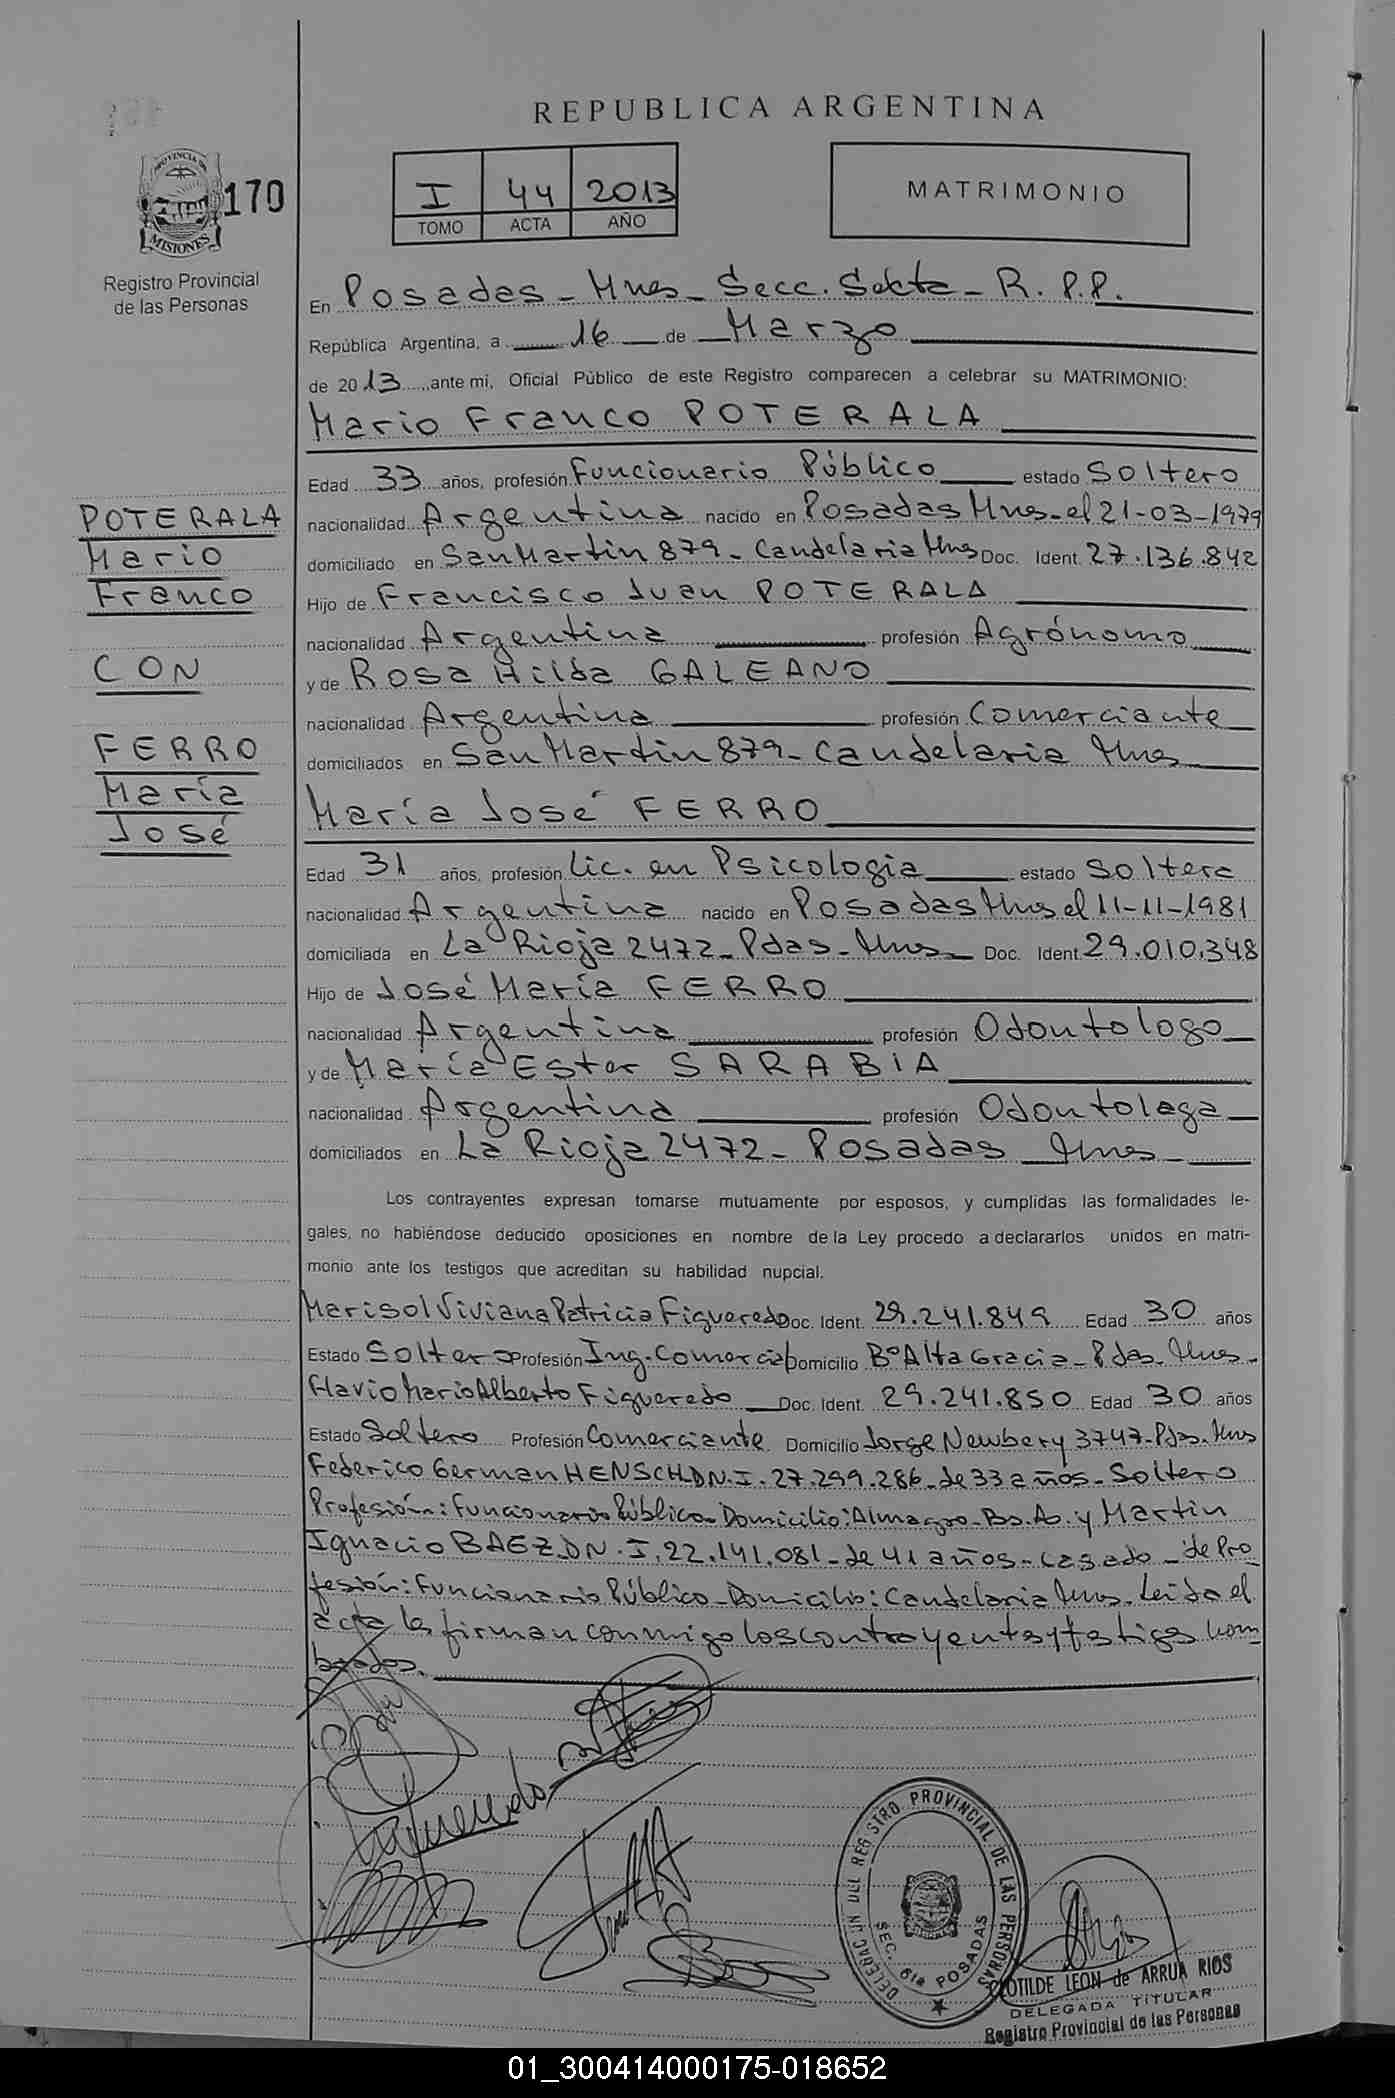 REPUBLICA ARGENTINA
PROVINCIA DE
MISIONES
170
Registro Provincial
de las Personas
I 44 2013
TOMO ACTA AÑO
MATRIMONIO
En Posadas - Mnes - Secc. Sexta - R. P.P.
República Argentina, a 16 de Marzo
de 2013 ante mí, Oficial Público de este Registro comparecen a celebrar su MATRIMONIO:
Mario Franco POTERALA
Edad 33 años, profesión Funcionario Público estado Soltero
nacionalidad Argentina nacido en Posadas Mnes - el 21-03-1979
domiciliado en San Martin 879 - Candelaria Mns Doc. Ident. 27.136.842
Hijo de Francisco Juan POTERALA
nacionalidad Argentina profesión Agrónomo
y de Rosa Hilda GALEANO
nacionalidad Argentina profesión Comerciante
domiciliados en San Martin 879 - Candelaria Mnes
POTERALA
Mario
Franco
CON
FERRO
María
José
María José FERRO
Edad 31 años, profesión Lic. en Psicologia estado Soltera
nacionalidad Argentina nacido en Posadas Mns el 11-11-1981
domiciliada en La Rioja 2472 - Pdas - Mnes - Doc. Ident. 29.010.348
Hijo de José María FERRO
nacionalidad Argentina profesión Odontologo
y de María Ester SARABIA
nacionalidad Argentina profesión Odontologa
domiciliados en La Rioja 2472 - Posadas Mnes -
Los contrayentes expresan tomarse mutuamente por esposos, y cumplidas las formalidades le-
gales, no habiéndose deducido oposiciones en nombre de la Ley procedo a declararlos unidos en matri-
monio ante los testigos que acreditan su habilidad nupcial.
Marisol Viviana Patricia Figueredo Doc. Ident. 29.241.849 Edad 30 años
Estado Soltera Profesión Ing. Comercial Domicilio Bº Alta Gracia - Pdas - Mnes -
Flavio Mario Alberto Figueredo Doc. Ident. 29.241.850 Edad 30 años
Estado Soltero Profesión Comerciante Domicilio Jorge Newbery 3747 - Pdas. Mns
Federico German HENSCH D.N.I. 27.299.286 - de 33 años - Soltero
Profesión: Funcionario Público - Domicilio: Almagro - Bs. As. y Martin
Ignacio BAEZ D.N.I. 22.141.081 - de 41 años - Casado - de Pro
fesión: Funcionario Público - Domicilio: Candelaria Mns. Leida el
acta la firman conmigo los contrayentes y testigos nom
brados.
DELEGACION DEL REGISTRO PROVINCIAL DE LAS PERSONAS
SEC. 6ta POSADAS
CLOTILDE LEON de ARRUA RIOS
DELEGADA TITULAR
Registro Provincial de las Personas
01_300414000175-018652